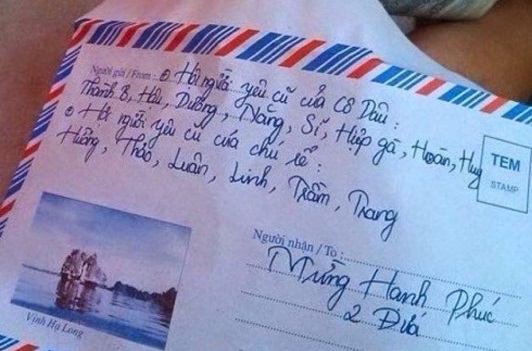 Người gửi / From : ⊙ Hội người yêu cũ của Cô Dâu :
Thành B, Hậu, Dưỡng, Năng, Sĩ, Hiệp gà, Hoàn, Huy
⊙ Hội người yêu cũ của chú rể :
Hường, Thảo, Luân, Linh, Trầm, Trang
TEM
STAMP
Người nhận / To :
Mừng Hạnh Phúc
2 Đứa
Vịnh Hạ Long